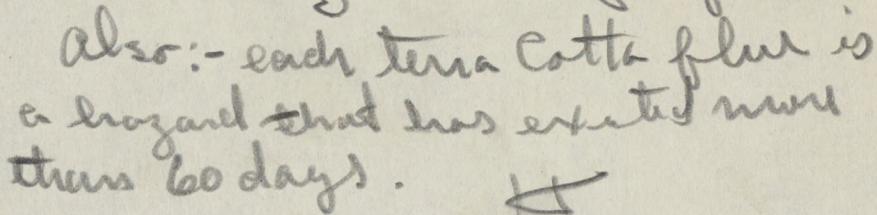 Also:- each terra cotta flue is
a hazard that has existed more
than 60 days.